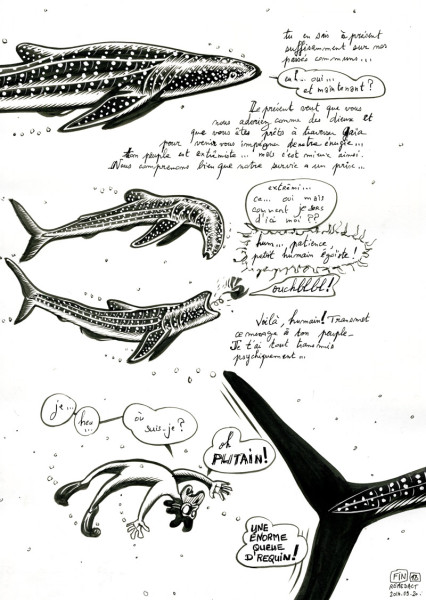 tu en sais à présent
suffisamment sur nos
passés communs...
euh... oui...
et maintenant?
Le présent veut que vous
nous adoriez comme des dieux et
que vous êtes prêts à traverser gaïa
pour venir vous imprégner de notre énergie...
ton peuple est extrêmiste... mais c'est mieux ainsi.
Nous comprenons bien que notre survie a un prix...
extrêmi...
ca... oui mais
comment je sors
d'ici moi??
hum... patience,
petit humain égoïste!
ouchbbbl!
Voilà, humain! Transmet
ce message à ton peuple
Je t'ai tout transmis
psychiquement...
je...
heu
...
où
suis-je?
oh
PUTAIN!
UNE
ÉNORME
QUEUE
D'REQUIN!
FIN